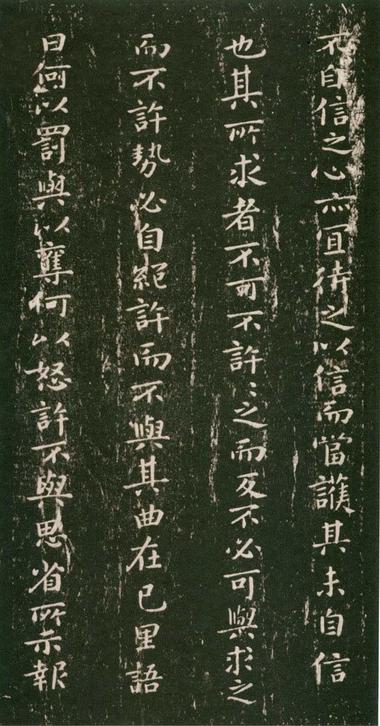 不自信之心亦宜待之以信而當護其未自信
也其所求者不可不許〻之而反不必可與求之
而不許勢必自絕許而不與其曲在已里語
曰何以罰與以奪何以怒許不與思省所示報